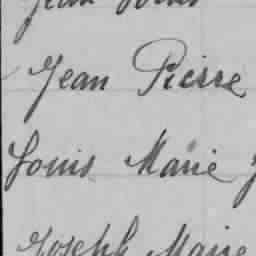 Jean
Jean Pierre
Louis Marie
Joseph Marie